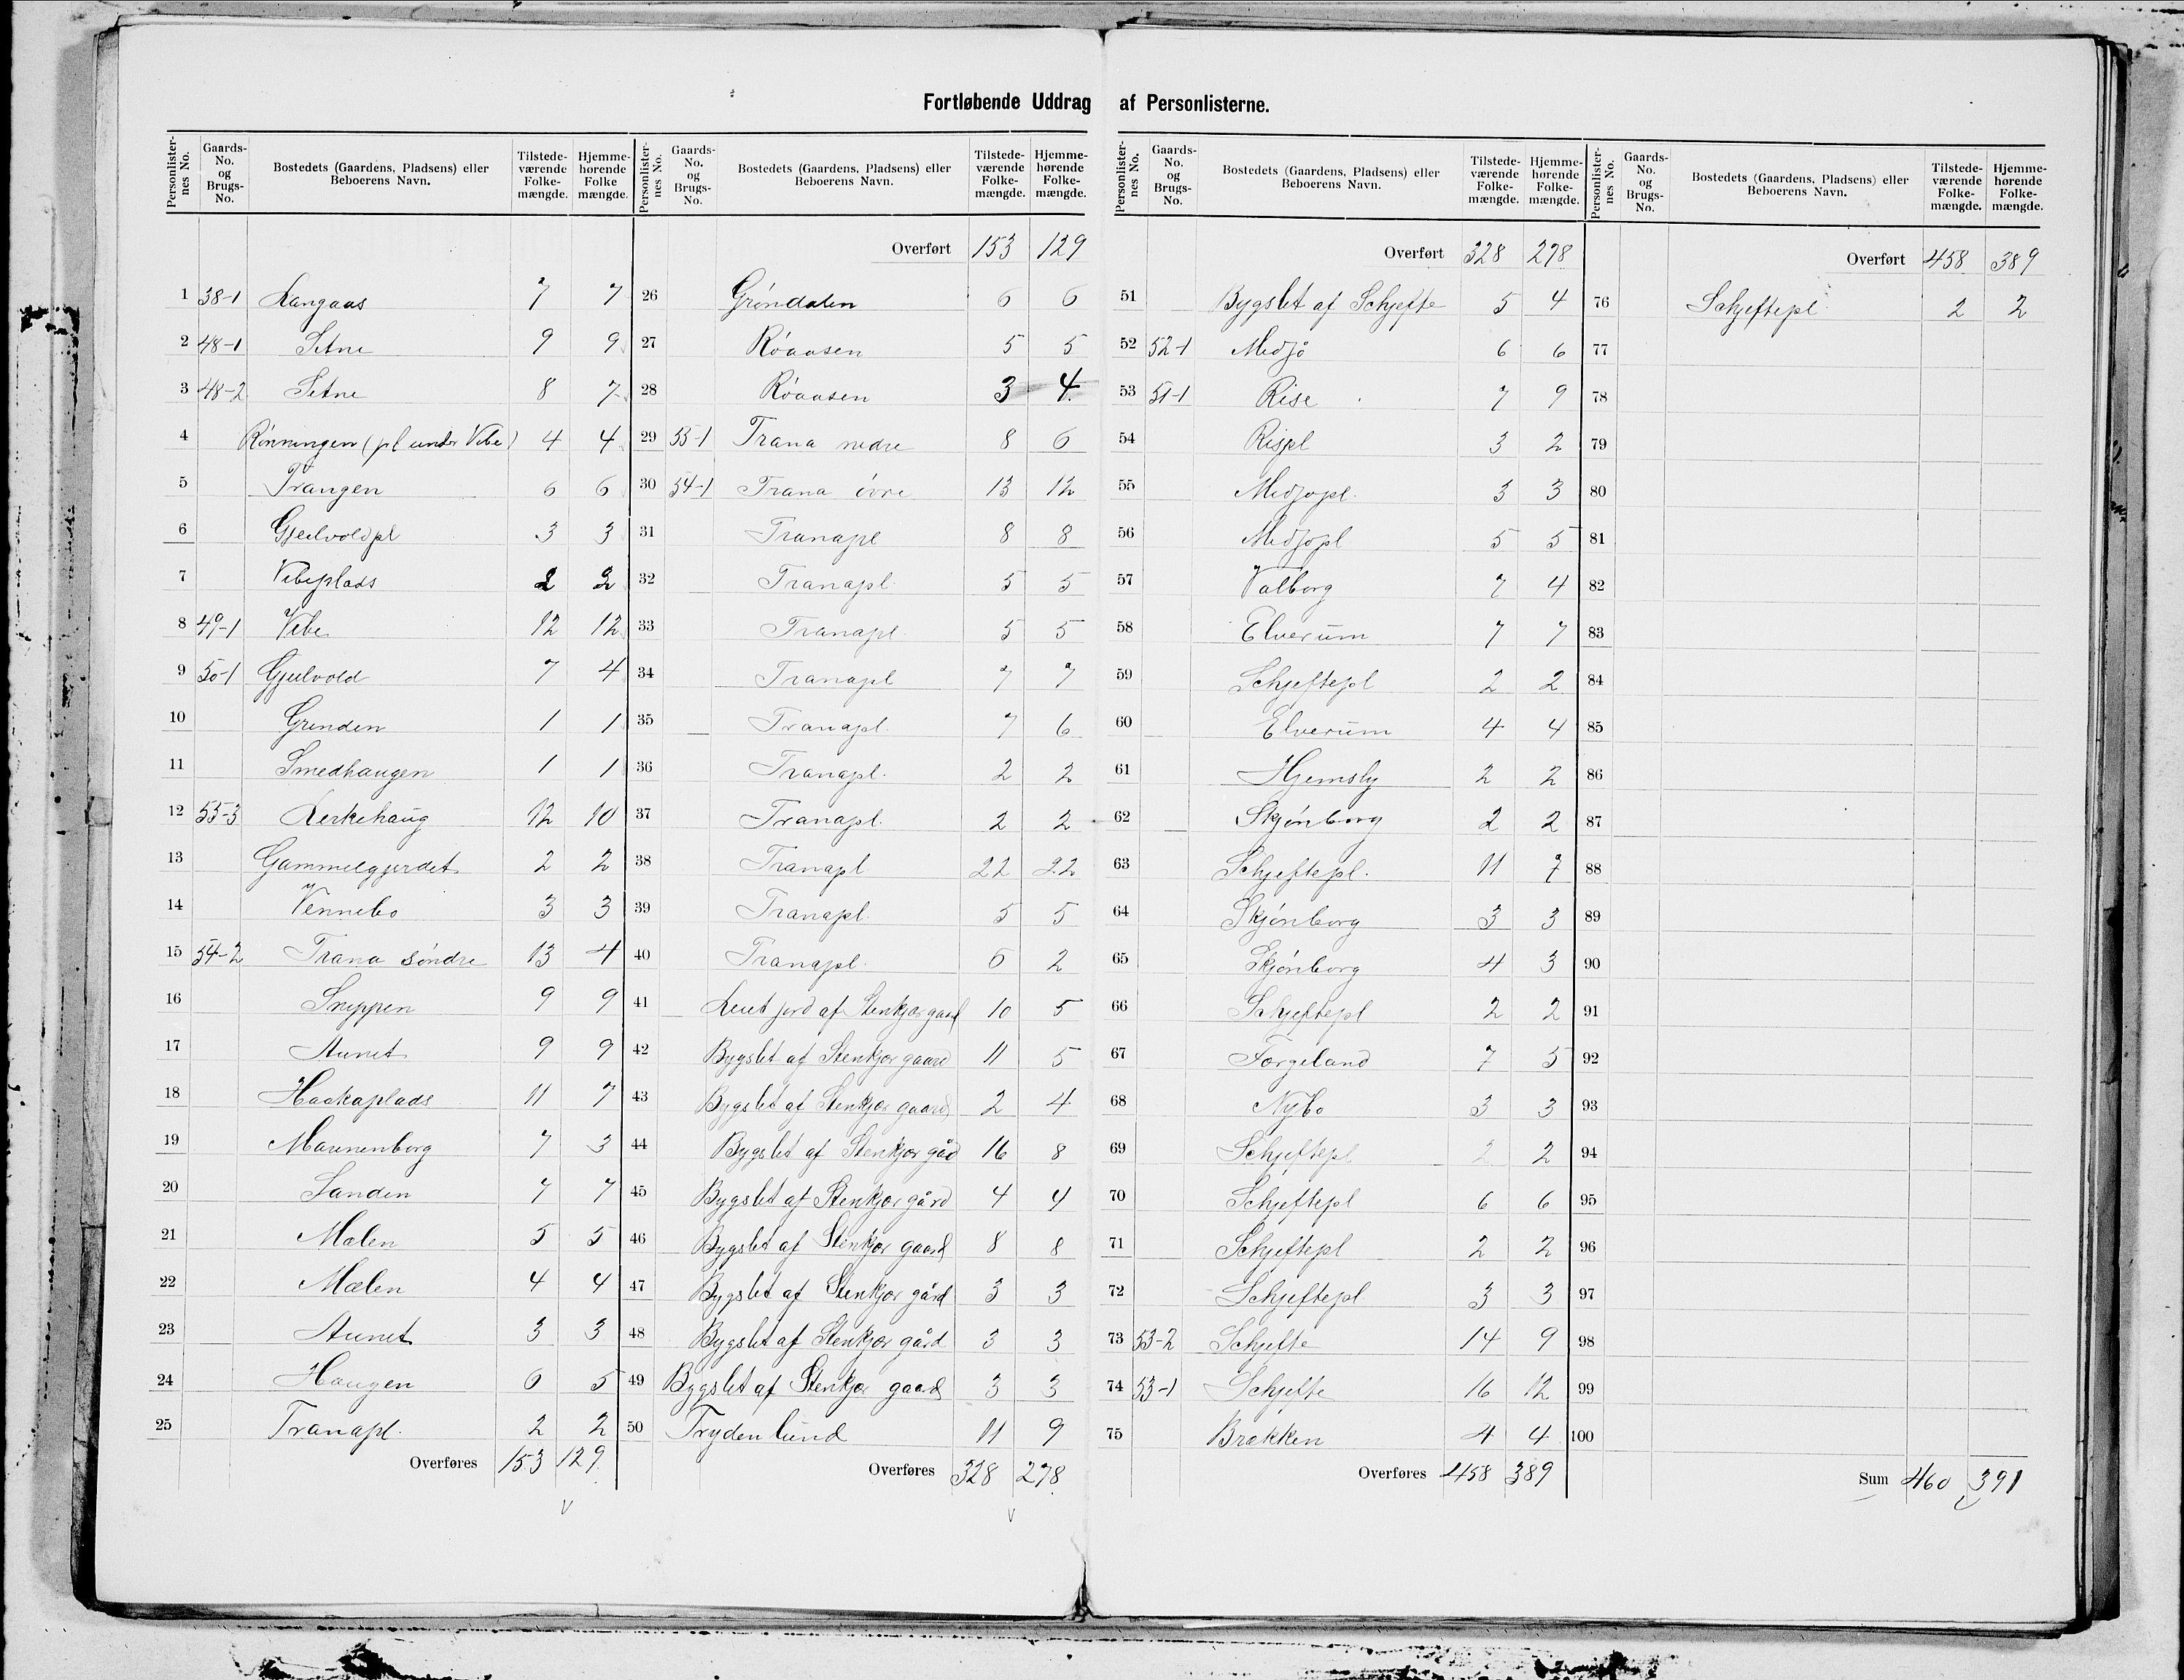 Fortløbende Uddrag af Personlisterne.
Personlister-nes No. Gaards-No. og Brugs-No. Bostedets (Gaardens, Pladsens) eller Beboerens Navn. Tilstede-værende Folke-mængde. Hjemme-hørende Folke mængde.
1 38-1 Langaas 7 7
2 48-1 Setne 9 9
3 48-2 Setne 8 7
4 Rönningen (pl under Vibe) 4 4
5 Trangen 6 6
6 Gjeilvoldpl 3 3
7 Vibeplads 2 2
8 49-1 Vibe 12 12
9 50-1 Gjeilvold 7 4
10 Grinden 1 1
11 Smedhaugen 1 1
12 55-3 Lerkehaug 12 10
13 Gammelgjerdet 2 2
14 Vennebo 3 3
15 54-2 Trana söndre 13 4
16 Sneppen 9 9
17 Aunet 9 9
18 Haakaplads 11 7
19 Maurenborg 7 3
20 Sanden 7 7
21 Mælen 5 5
22 Mælen 4 4
23 Aunet 3 3
24 Haugen 6 5
25 Tranapl. 2 2
Overføres 153 129
Personlister-nes No. Gaards-No. og Brugs-No. Bostedets (Gaardens, Pladsens) eller Beboerens Navn. Tilstede-værende Folke-mængde. Hjemme-hørende Folke-mængde.
Overført 153 129
26 Gröndalen 6 6
27 Röaasen 5 5
28 Röaasen 3 4
29 55-1 Trana nedre 8 6
30 54-1 Trana övre 13 12
31 Tranapl 8 8
32 Tranapl 5 5
33 Tranapl 5 5
34 Tranapl 7 7
35 Tranapl. 7 6
36 Tranapl. 2 2
37 Tranapl. 2 2
38 Tranapl 22 22
39 Tranapl. 5 5
40 Tranapl. 6 2
41 Leiet jord af Stenkjær gaard 10 5
42 Bygslet af Stenkjær gaard 11 5
43 Bygslet af Stenkjær gaard 2 4
44 Bygslet af Stenkjær gåd 16 8
45 Bygslet af Stenkjær gård 4 4
46 Bygslet af Stenkjær gaard 8 8
47 Bygslet af Stenkjær gård 3 3
48 Bygslet af Stenkjær gård 3 3
49 Bygslet af Stenkjær gaard 3 3
50 Trydenlund 11 9
Overføres 328 278
Personlister-nes No. Gaards-No. og Brugs-No. Bostedets (Gaardens, Pladsens) eller Beboerens Navn. Tilstede-værende Folke-mængde. Hjemme-hørende Folke-mængde.
Overført 328 278
51 Bygslet af Schjefte 5 4
52 52-1 Midjö 6 6
53 51-1 Rise 7 9
54 Rispl 3 2
55 Midjopl. 3 3
56 Midjopl 5 5
57 Valborg 7 4
58 Elverum 7 7
59 Schjeftepl 2 2
60 Elverum 4 4
61 Hjemsly 2 2
62 Skjönborg 2 2
63 Schjeftepl. 11 7
64 Skjönborg 3 3
65 Skjönborg 4 3
66 Schjeftepl 2 2
67 Forgeland 7 5
68 Nybo 3 3
69 Schjeftepl 2 2
70 Schjeftepl 6 6
71 Schjeftepl 2 2
72 Schjeftepl 3 3
73 53-2 Schjefte 14 9
74 53-1 Schjefte 16 12
75 Brækken 4 4
Overføres 458 389
Personlister-nes No. Gaards-No. og Brugs-No. Bostedets (Gaardens, Pladsens) eller Beboerens Navn. Tilstede-værende Folke-mængde. Hjemme-hørende Folke-mængde.
Overført 458 389
76 Schjeftepl 2 2
77
78
79
80
81
82
83
84
85
86
87
88
89
90
91
92
93
94
95
96
97
98
99
100
Sum 460 391